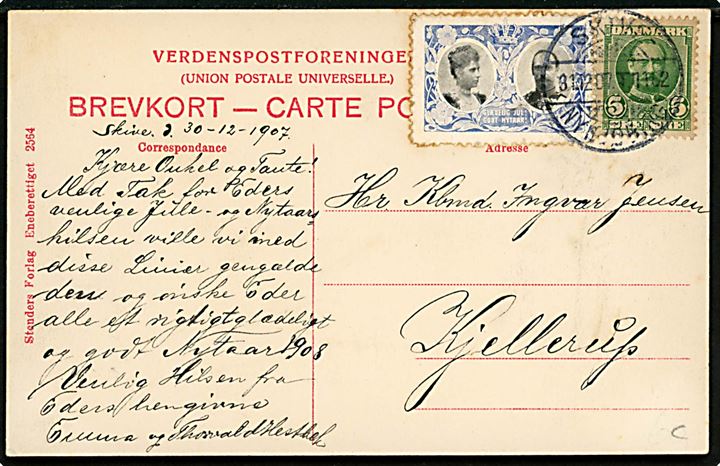 VERDENSPOSTFORENINGE
(UNION POSTALE UNIVERSELLE.)
BREVKORT — CARTE PO
Skive. d. 30-12-1907.
Correspondance
Adresse
Kjære Onkel og Tante!
Med Tak for Eders
venlige Julle- og Nytaars
hilsen ville vi med
disse Linier gengælde
den og ønske Eder
alle et rigtigt glædeligt
og godt Nytaar 1908
Venlig Hilsen fra
Eders hengivne
Emma og Thorvald
Hr Kbmd. Ingvar Jensen
Kjellerup
Stenders Forlag Eneberettiget 2564
GLÆDELIG JUL
GODT NYTAAR!
DANMARK
5 5
31.12.07
C